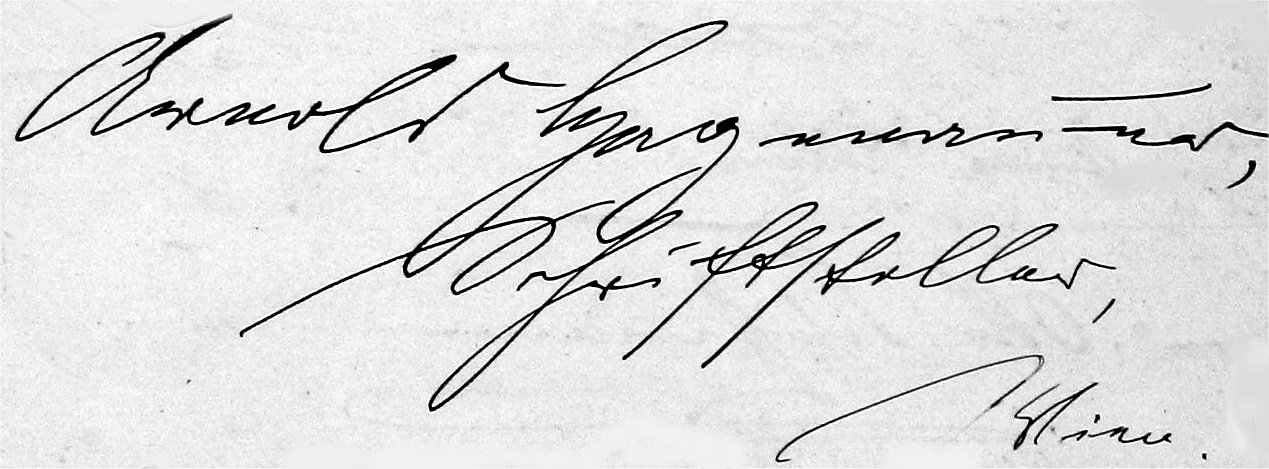 Arnold Hagenauer,
Schriftsteller,
Wien.